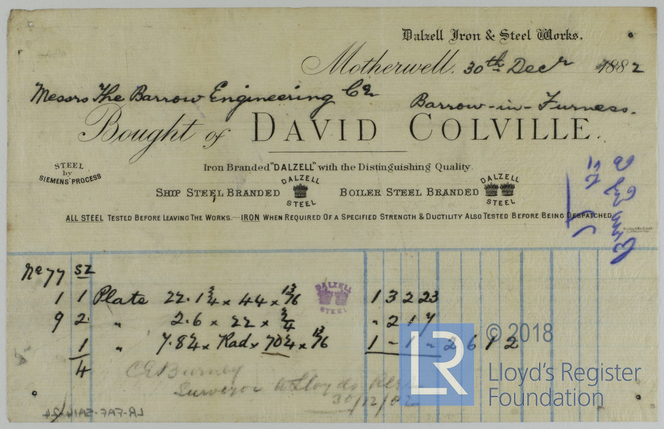 Dalzell Iron & Steel Works.
Motherwell, 30th Decr 1882
Messrs The Barrow Engineering Co
Barrow-in-Furness.
Bought of DAVID COLVILLE.
Iron Branded "DALZELL" with the Distinguishing Quality.
STEEL by SIEMENS' PROCESS
SHIP STEEL BRANDED DALZELL STEEL BOILER STEEL BRANDED DALZELL STEEL
ALL STEEL TESTED BEFORE LEAVING THE WORKS.—IRON WHEN REQUIRED OF A SPECIFIED STRENGTH & DUCTILITY ALSO TESTED BEFORE BEING DESPATCHED.
No 77 SZ
1 1 Plate 22.1¾ x 44 x 13/16 DALZELL STEEL 1 3 2 23
9 2 " 2.6 x 22 x ¾ - 2 1 4
1 " 7.8¼ x Rad x 70¼ x 13/16 1 - 1 - 2 6 1 2
4
Surveyor to Lloyds
30/12/82
LR
© 2018
Lloyd's Register
Foundation
LR-FAF-